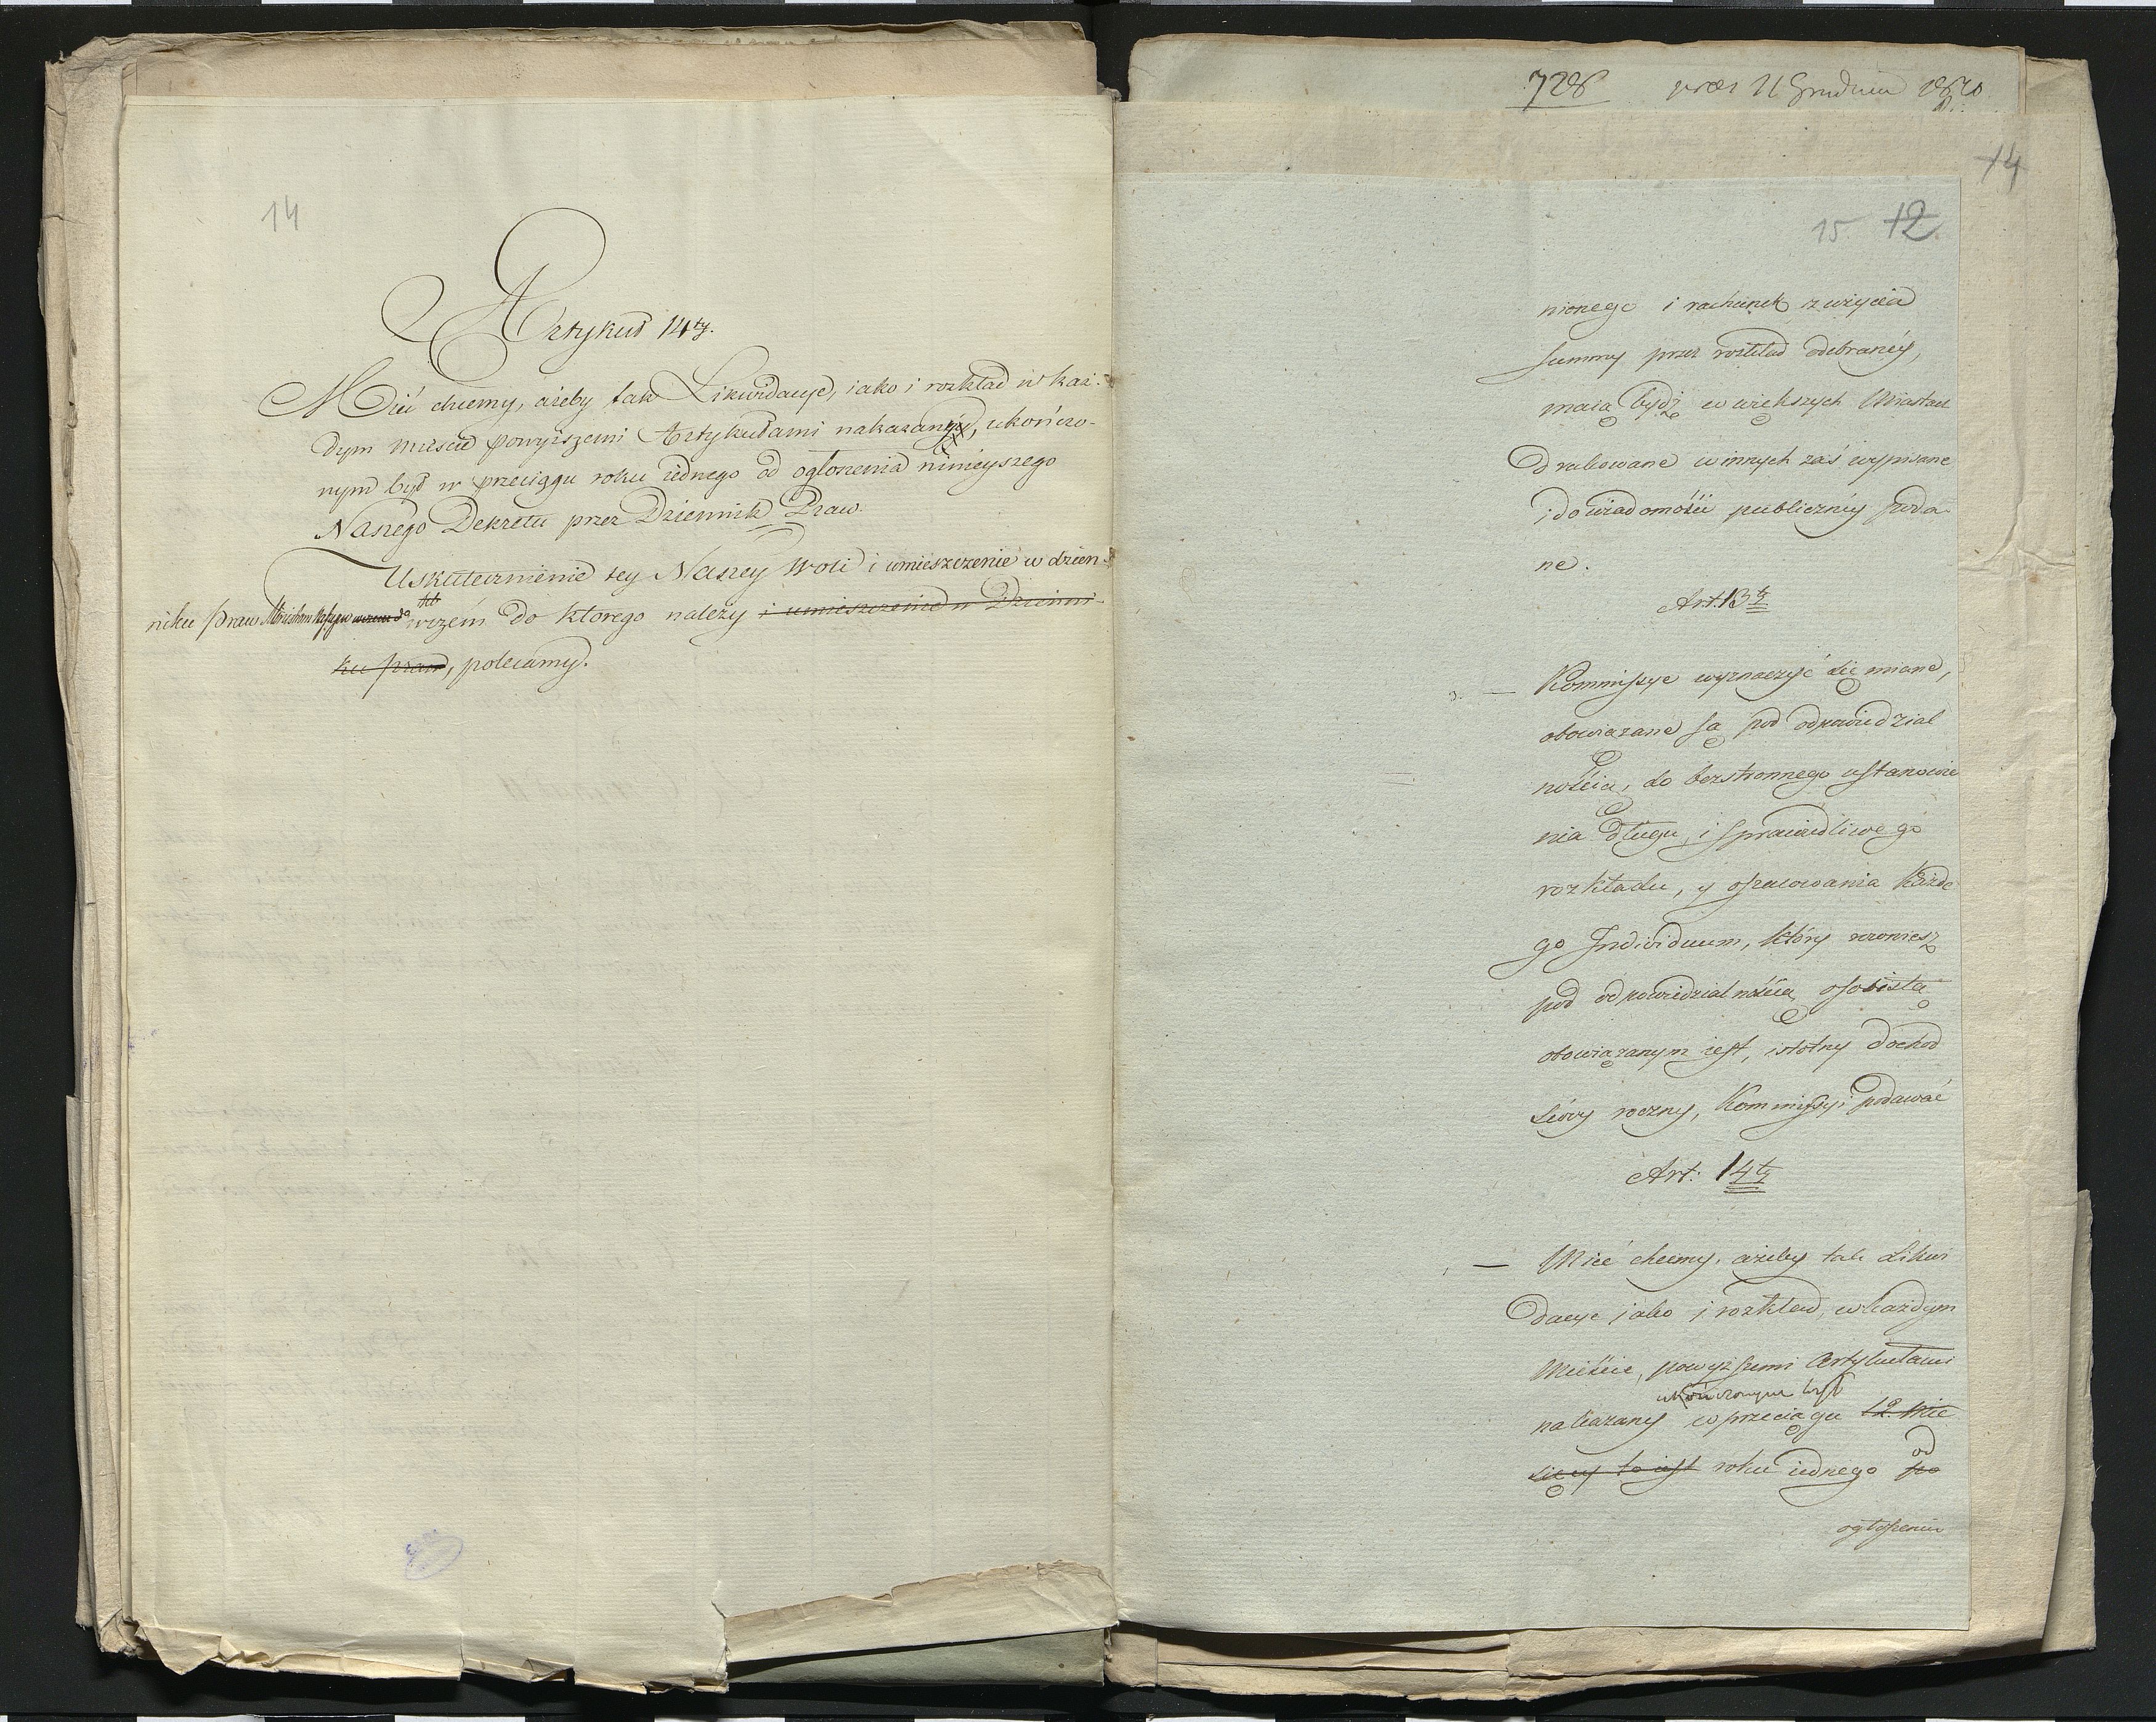 14
Artykuł 14ty.
Mieć chcemy, ażeby tak Likwidacye, iako i rozkład w każ-
dym mieście powyższemi Artykułami nakazany, ukończo-
nym był w przeciągu roku iednego od ogłoszenia ninieyszego
Naszego Dekretu przez Dziennik Praw.
Uskutecznienie tey Naszey Woli i umieszczenie w dzien-
niku praw Ministrom w czém do ktorego należy i umieszczenie w Dzienni-
ku praw, polecamy.
728 prez 11 Grudnia 1810
14
15 12
nionego i rachunek z użycia
summy przez rozkład odebraney,
maią bydź w większych Miastach
drukowane w innych zaś wypisane
i do wiadomości publiczney poda
ne.
Art. 13ty
Kommissye wyznaczyć się miane,
obowiązane są pod odpowiedzial
nością, do bezstronnego ustanowie
nia długu, i sprawiedliwego
rozkładu, y oszacowania każde
go Individuum, który rownież
pod odpowiedzialnością osobistą
obowiązanym iest, istotny dochod
swóy roczny, Kommissyi podawać
Art: 14ty
Mieć chcemy, ażeby tak Likwi
dacye iako i rozkład, w każdym
Mieście, powyższemi Artykułami
ukończonym był
nakazany w przeciągu 12 mie
sięcy to iest roku iednego po
od
ogłoszenia